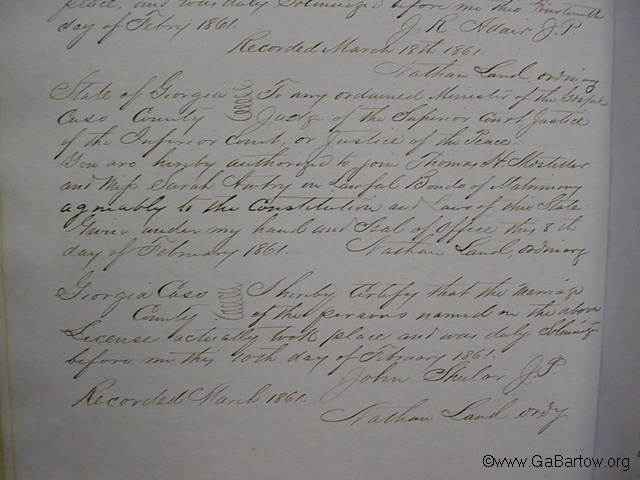 place, and was duly Solmnizd before me this Fourteenth
day of Febry 1861. J. R. Adair J.P.
Recorded March 18th 1861.
Nathan Land, ordinary
State of Georgia To any ordained Minister of the Gospel
Cass County Judge of the Superior Court, Justice
of the Inferior Court, or Justice of the Peace.
You are hereby authorized to join Thomas H. Mosteller
and Miss Sarah Awtry in Lawful Bonds of Matrimony
agreeably to the Constitution and Laws of this State
Given under my hand and Seal of Office this 8th
day of February 1861. Nathan Land, ordinary
Georgia Cass I hereby Certify that the Marriage
County of the persons named in the above
License actually took place and was duly Solmnizd
before me this 10th day of February 1861.
John Shular J.P.
Recorded March 1861.
Nathan Land ordy
©www.GaBartow.org